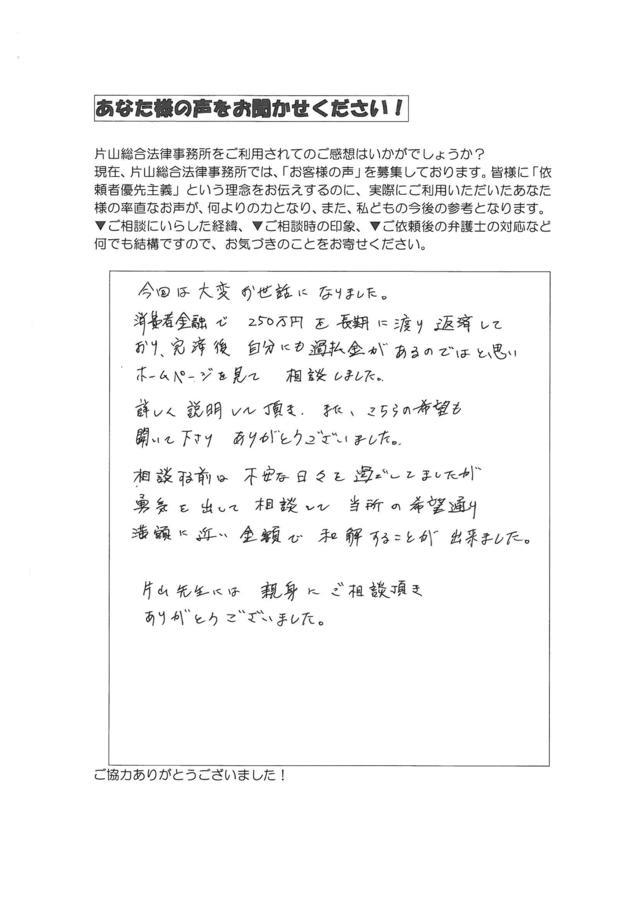 あなた様の声をお聞かせください！
片山総合法律事務所をご利用されてのご感想はいかがでしょうか？
現在、片山総合法律事務所では、「お客様の声」を募集しております。皆様に「依
頼者優先主義」という理念をお伝えするのに、実際にご利用いただいたあなた
様の率直なお声が、何よりの力となり、また、私どもの今後の参考となります。
▼ご相談にいらした経緯、▼ご相談時の印象、▼ご依頼後の弁護士の対応など
何でも結構ですので、お気づきのことをお寄せください。
今回は大変お世話になりました。
消費者金融で 250万円を長期に渡り返済して
おり、完済後 自分にも過払金があるのではと思い
ホームページを見て 相談しました。
詳しく説明して頂き、また、こちらの希望も
聞いて下さり ありがとうございました。
相談する前は 不安な日々を過ごしてましたが
勇気を出して 相談して 当所の希望通り
満額に近い金額で 和解することが出来ました。
片山先生には 親身にご相談頂き
ありがとうございました。
ご協力ありがとうございました！